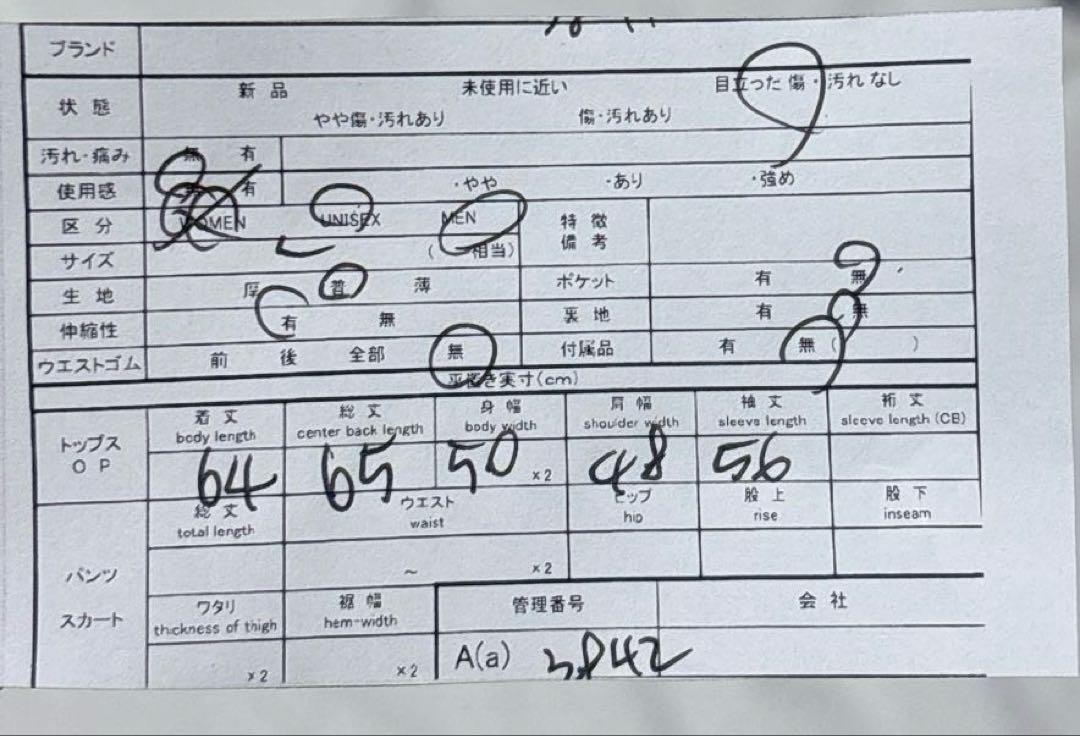 ブランド
状態 新品 未使用に近い 目立った傷・汚れなし
やや傷・汚れあり 傷・汚れあり
汚れ・痛み 無 有
使用感 有 ・やや ・あり ・強め
区分 WOMEN UNISEX MEN 特徴
備考
サイズ L (相当)
生地 厚 普 薄 ポケット 有 無
伸縮性 有 無 裏地 有 無
ウエストゴム 前 後 全部 無 付属品 有 無( )
平置き実寸(cm)
トップス
OP
着丈 総丈 身幅 肩幅 袖丈 裄丈
body length center back length body width shoulder width sleeve length sleeve length (CB)
64 65 50 ×2 48 56
パンツ
スカート
総丈 ウエスト ヒップ 股上 股下
total length waist hip rise inseam
~ ×2
ワタリ 裾幅 管理番号 会社
thickness of thigh hem-width
×2 ×2 A(a) 3842